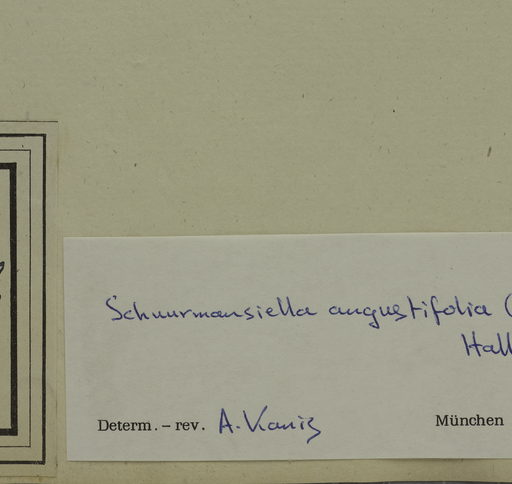 Schuurmansiella angustifolia (
Hall
Determ. – rev. A. Kanis München